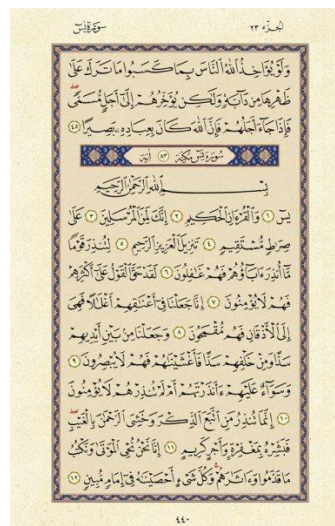 سورة يس الجزء ٢٣
وَلَوْ يُؤَاخِذُ اللَّهُ النَّاسَ بِمَا كَسَبُوا مَا تَرَكَ عَلَىٰ
ظَهْرِهَا مِن دَابَّةٍ وَلَٰكِن يُؤَخِّرُهُمْ إِلَىٰ أَجَلٍ مُّسَمًّى
فَإِذَا جَاءَ أَجَلُهُمْ فَإِنَّ اللَّهَ كَانَ بِعِبَادِهِ بَصِيرًا ٤٥
سورة يس مكية ٨٣ آية
بِسْمِ اللَّهِ الرَّحْمَٰنِ الرَّحِيمِ
يس ١ وَالْقُرْآنِ الْحَكِيمِ ٢ إِنَّكَ لَمِنَ الْمُرْسَلِينَ ٣ عَلَىٰ
صِرَاطٍ مُّسْتَقِيمٍ ٤ تَنزِيلَ الْعَزِيزِ الرَّحِيمِ ٥ لِتُنذِرَ قَوْمًا
مَّا أُنذِرَ آبَاؤُهُمْ فَهُمْ غَافِلُونَ ٦ لَقَدْ حَقَّ الْقَوْلُ عَلَىٰ أَكْثَرِهِمْ
فَهُمْ لَا يُؤْمِنُونَ ٧ إِنَّا جَعَلْنَا فِي أَعْنَاقِهِمْ أَغْلَالًا فَهِيَ
إِلَى الْأَذْقَانِ فَهُم مُّقْمَحُونَ ٨ وَجَعَلْنَا مِن بَيْنِ أَيْدِيهِمْ
سَدًّا وَمِنْ خَلْفِهِمْ سَدًّا فَأَغْشَيْنَاهُمْ فَهُمْ لَا يُبْصِرُونَ ٩
وَسَوَاءٌ عَلَيْهِمْ أَأَنذَرْتَهُمْ أَمْ لَمْ تُنذِرْهُمْ لَا يُؤْمِنُونَ
١٠ إِنَّمَا تُنذِرُ مَنِ اتَّبَعَ الذِّكْرَ وَخَشِيَ الرَّحْمَٰنَ بِالْغَيْبِ
فَبَشِّرْهُ بِمَغْفِرَةٍ وَأَجْرٍ كَرِيمٍ ١١ إِنَّا نَحْنُ نُحْيِي الْمَوْتَىٰ وَنَكْتُبُ
مَا قَدَّمُوا وَآثَارَهُمْ وَكُلَّ شَيْءٍ أَحْصَيْنَاهُ فِي إِمَامٍ مُّبِينٍ ١٢
٤٤٠